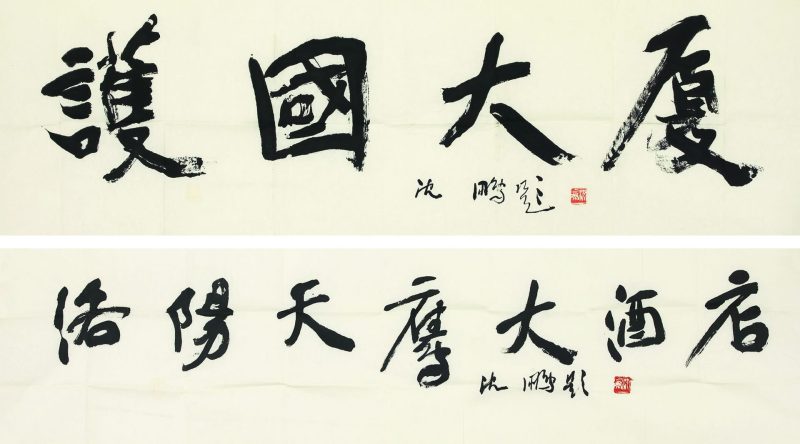 護國大厦
沈鹏題
洛陽天鹰大酒店
沈鹏题